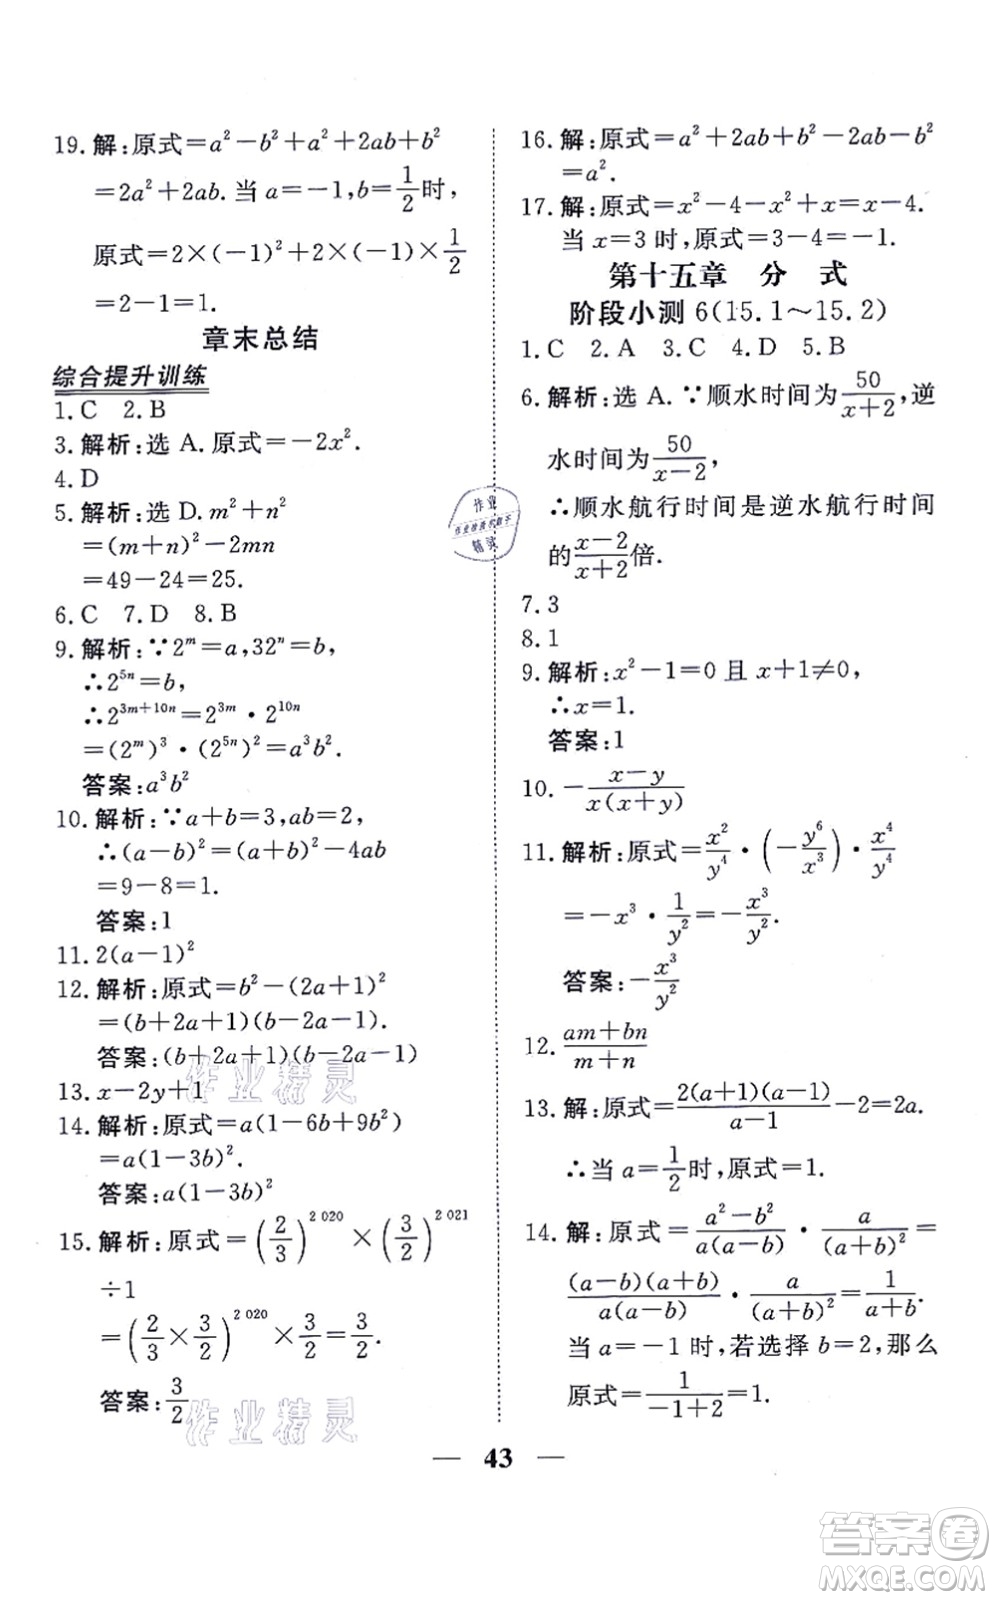 19. 解:原式=a²-b²+a²+2ab+b²
=2a²+2ab. 当 a=-1,b=1/2时,
原式=2×(-1)²+2×(-1)×1/2
=2-1=1.
章末总结
综合提升训练
1. C 2. B
3. 解析:选 A. 原式=-2x².
4. D
5. 解析:选 D. m²+n²
=(m+n)²-2mn
=49-24=25.
6. C 7. D 8. B
9. 解析:∵2ᵐ=a,32ⁿ=b,
∴2⁵ⁿ=b,
∴2³ᵐ⁺¹⁰ⁿ=2³ᵐ·2¹⁰ⁿ
=(2ᵐ)³·(2⁵ⁿ)²=a³b².
答案:a³b²
10. 解析:∵a+b=3,ab=2,
∴(a-b)²=(a+b)²-4ab
=9-8=1.
答案:1
11. 2(a-1)²
12. 解析:原式=b²-(2a+1)²
=(b+2a+1)(b-2a-1).
答案:(b+2a+1)(b-2a-1)
13. x-2y+1
14. 解析:原式=a(1-6b+9b²)
=a(1-3b)².
答案:a(1-3b)²
15. 解析:原式=(2/3)²⁰²⁰×(3/2)²⁰²¹
÷1
=(2/3×3/2)²⁰²⁰×3/2=3/2.
答案:3/2
16. 解:原式=a²+2ab+b²-2ab-b²
=a².
17. 解:原式=x²-4-x²+x=x-4.
当 x=3 时,原式=3-4=-1.
第十五章 分 式
阶段小测 6(15.1～15.2)
1. C 2. A 3. C 4. D 5. D
6. 解析:选 A. ∵顺水时间为50/(x+2),逆
水时间为50/(x-2),
∴顺水航行时间是逆水航行时间
的(x-2)/(x+2)倍.
7. 3
8. 1
9. 解析:x²-1=0 且 x+1≠0,
∴x=1.
答案:1
10. -(x-y)/(x(x+y))
11. 解析:原式=x²/y⁴·(-y⁶/x³)·x⁴/y⁴
=-x³·1/y²=-x³/y².
答案:-x³/y²
12. (am+bn)/(m+n)
13. 解:原式=2(a+1)(a-1)/(a-1)-2=2a.
∴当 a=1/2时,原式=1.
14. 解:原式=(a²-b²)/(a(a-b))·a/(a+b)²=
(a-b)(a+b)/(a(a-b))·a/(a+b)²=1/(a+b).
当 a=-1 时,若选择 b=2,那么
原式=1/(-1+2)=1.
— 43 —
作业
精灵
作业精灵
作业精灵
答案卷
MXQE.COM